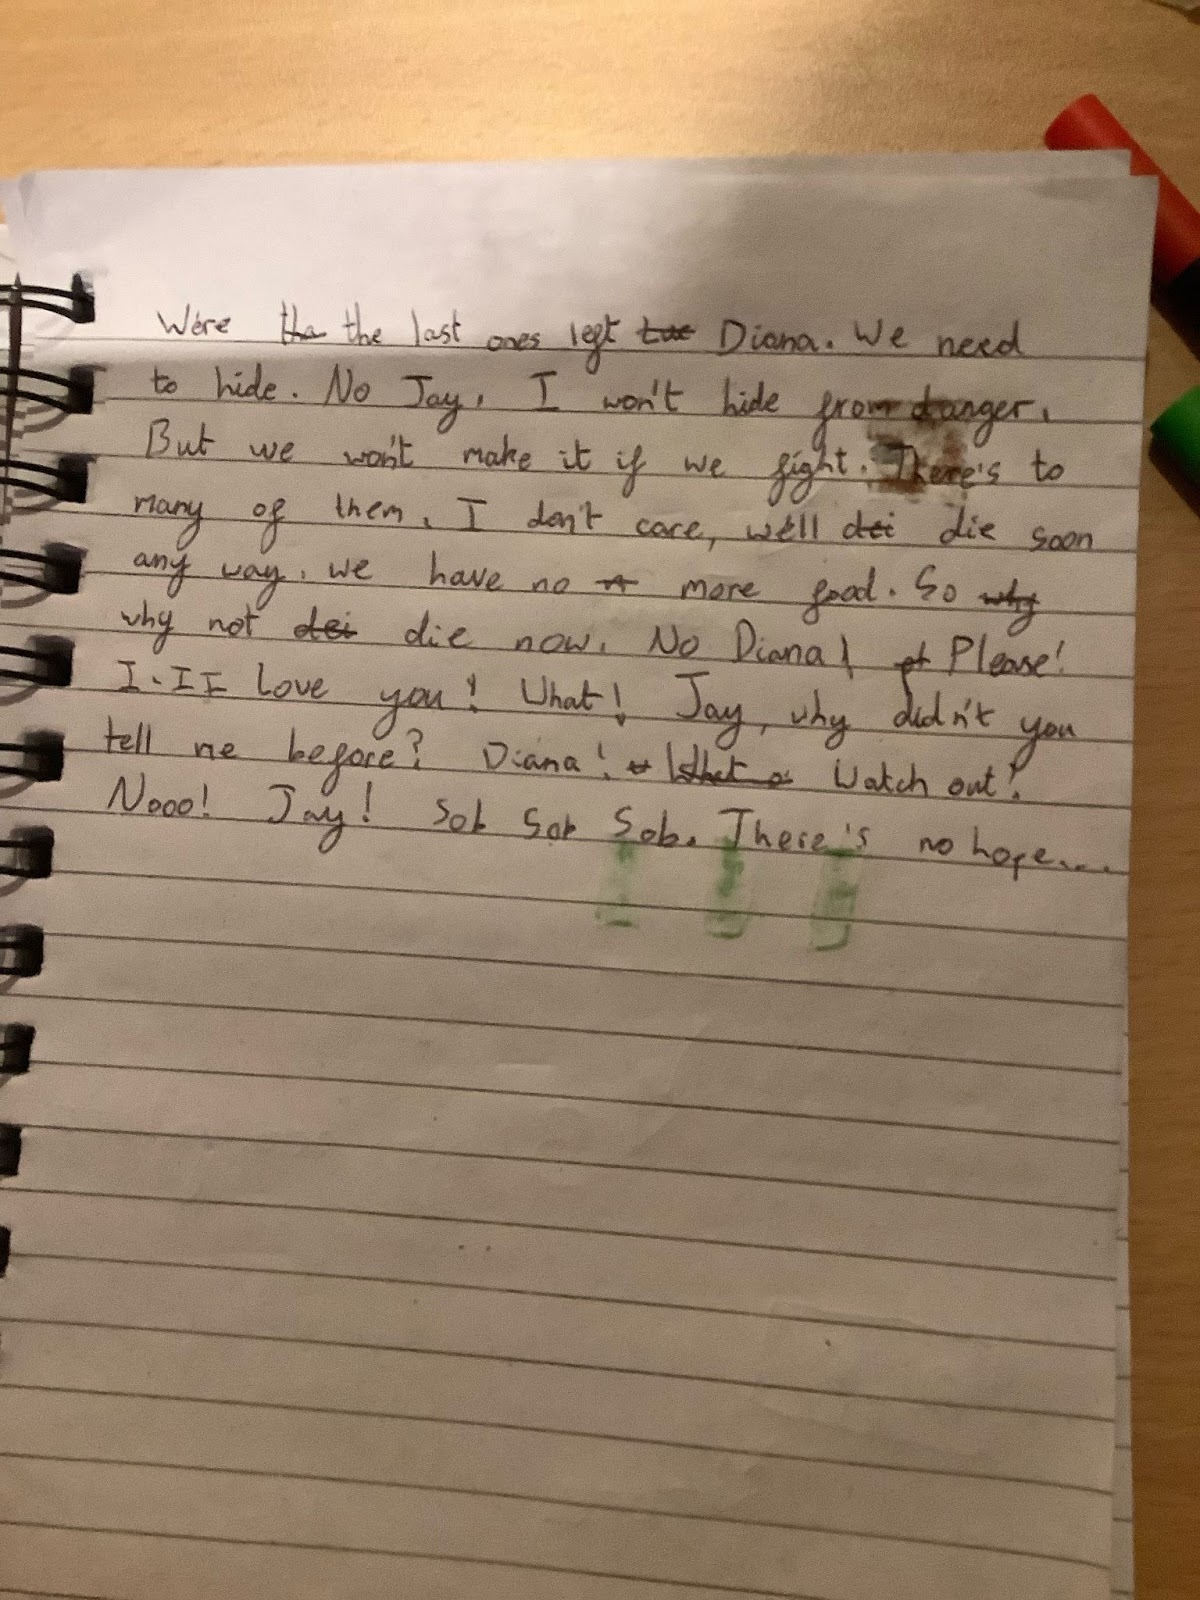 We're the the last ones left Diana. We need
to hide. No Jay, I won't hide from danger.
But we won't make it if we fight. There's to
many of them. I don't care, we'll dei die soon
any way. we have no more food. So why
why not dei die now. No Diana! Please!
I-II Love you! What! Jay, why didn't you
tell me before? Diana! What Watch out!
Nooo! Jay! Sob Sob Sob. There's no hope....